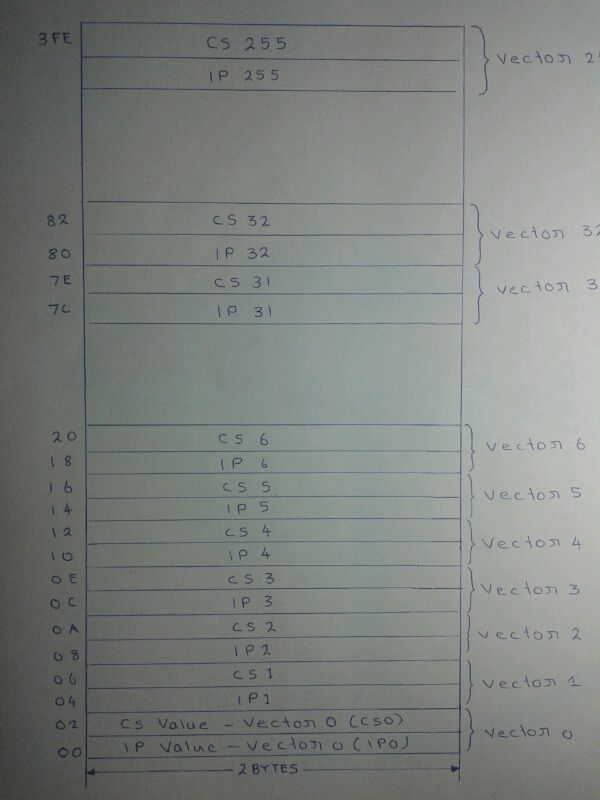 3FE CS 255
IP 255 Vector
82 CS 32
80 IP 32 Vector 32
7E CS 31
7C IP 31 Vector
20 CS 6
18 IP 6 Vector 6
16 CS 5
14 IP 5 Vector 5
12 CS 4
10 IP 4 Vector 4
0E CS 3
0C IP 3 Vector 3
0A CS 2
08 IP2 Vector 2
06 CS1
04 IP1 Vector 1
02 CS Value - Vector 0 (CS0)
00 IP Value - Vector 0 (IP0) Vector 0
2 BYTES